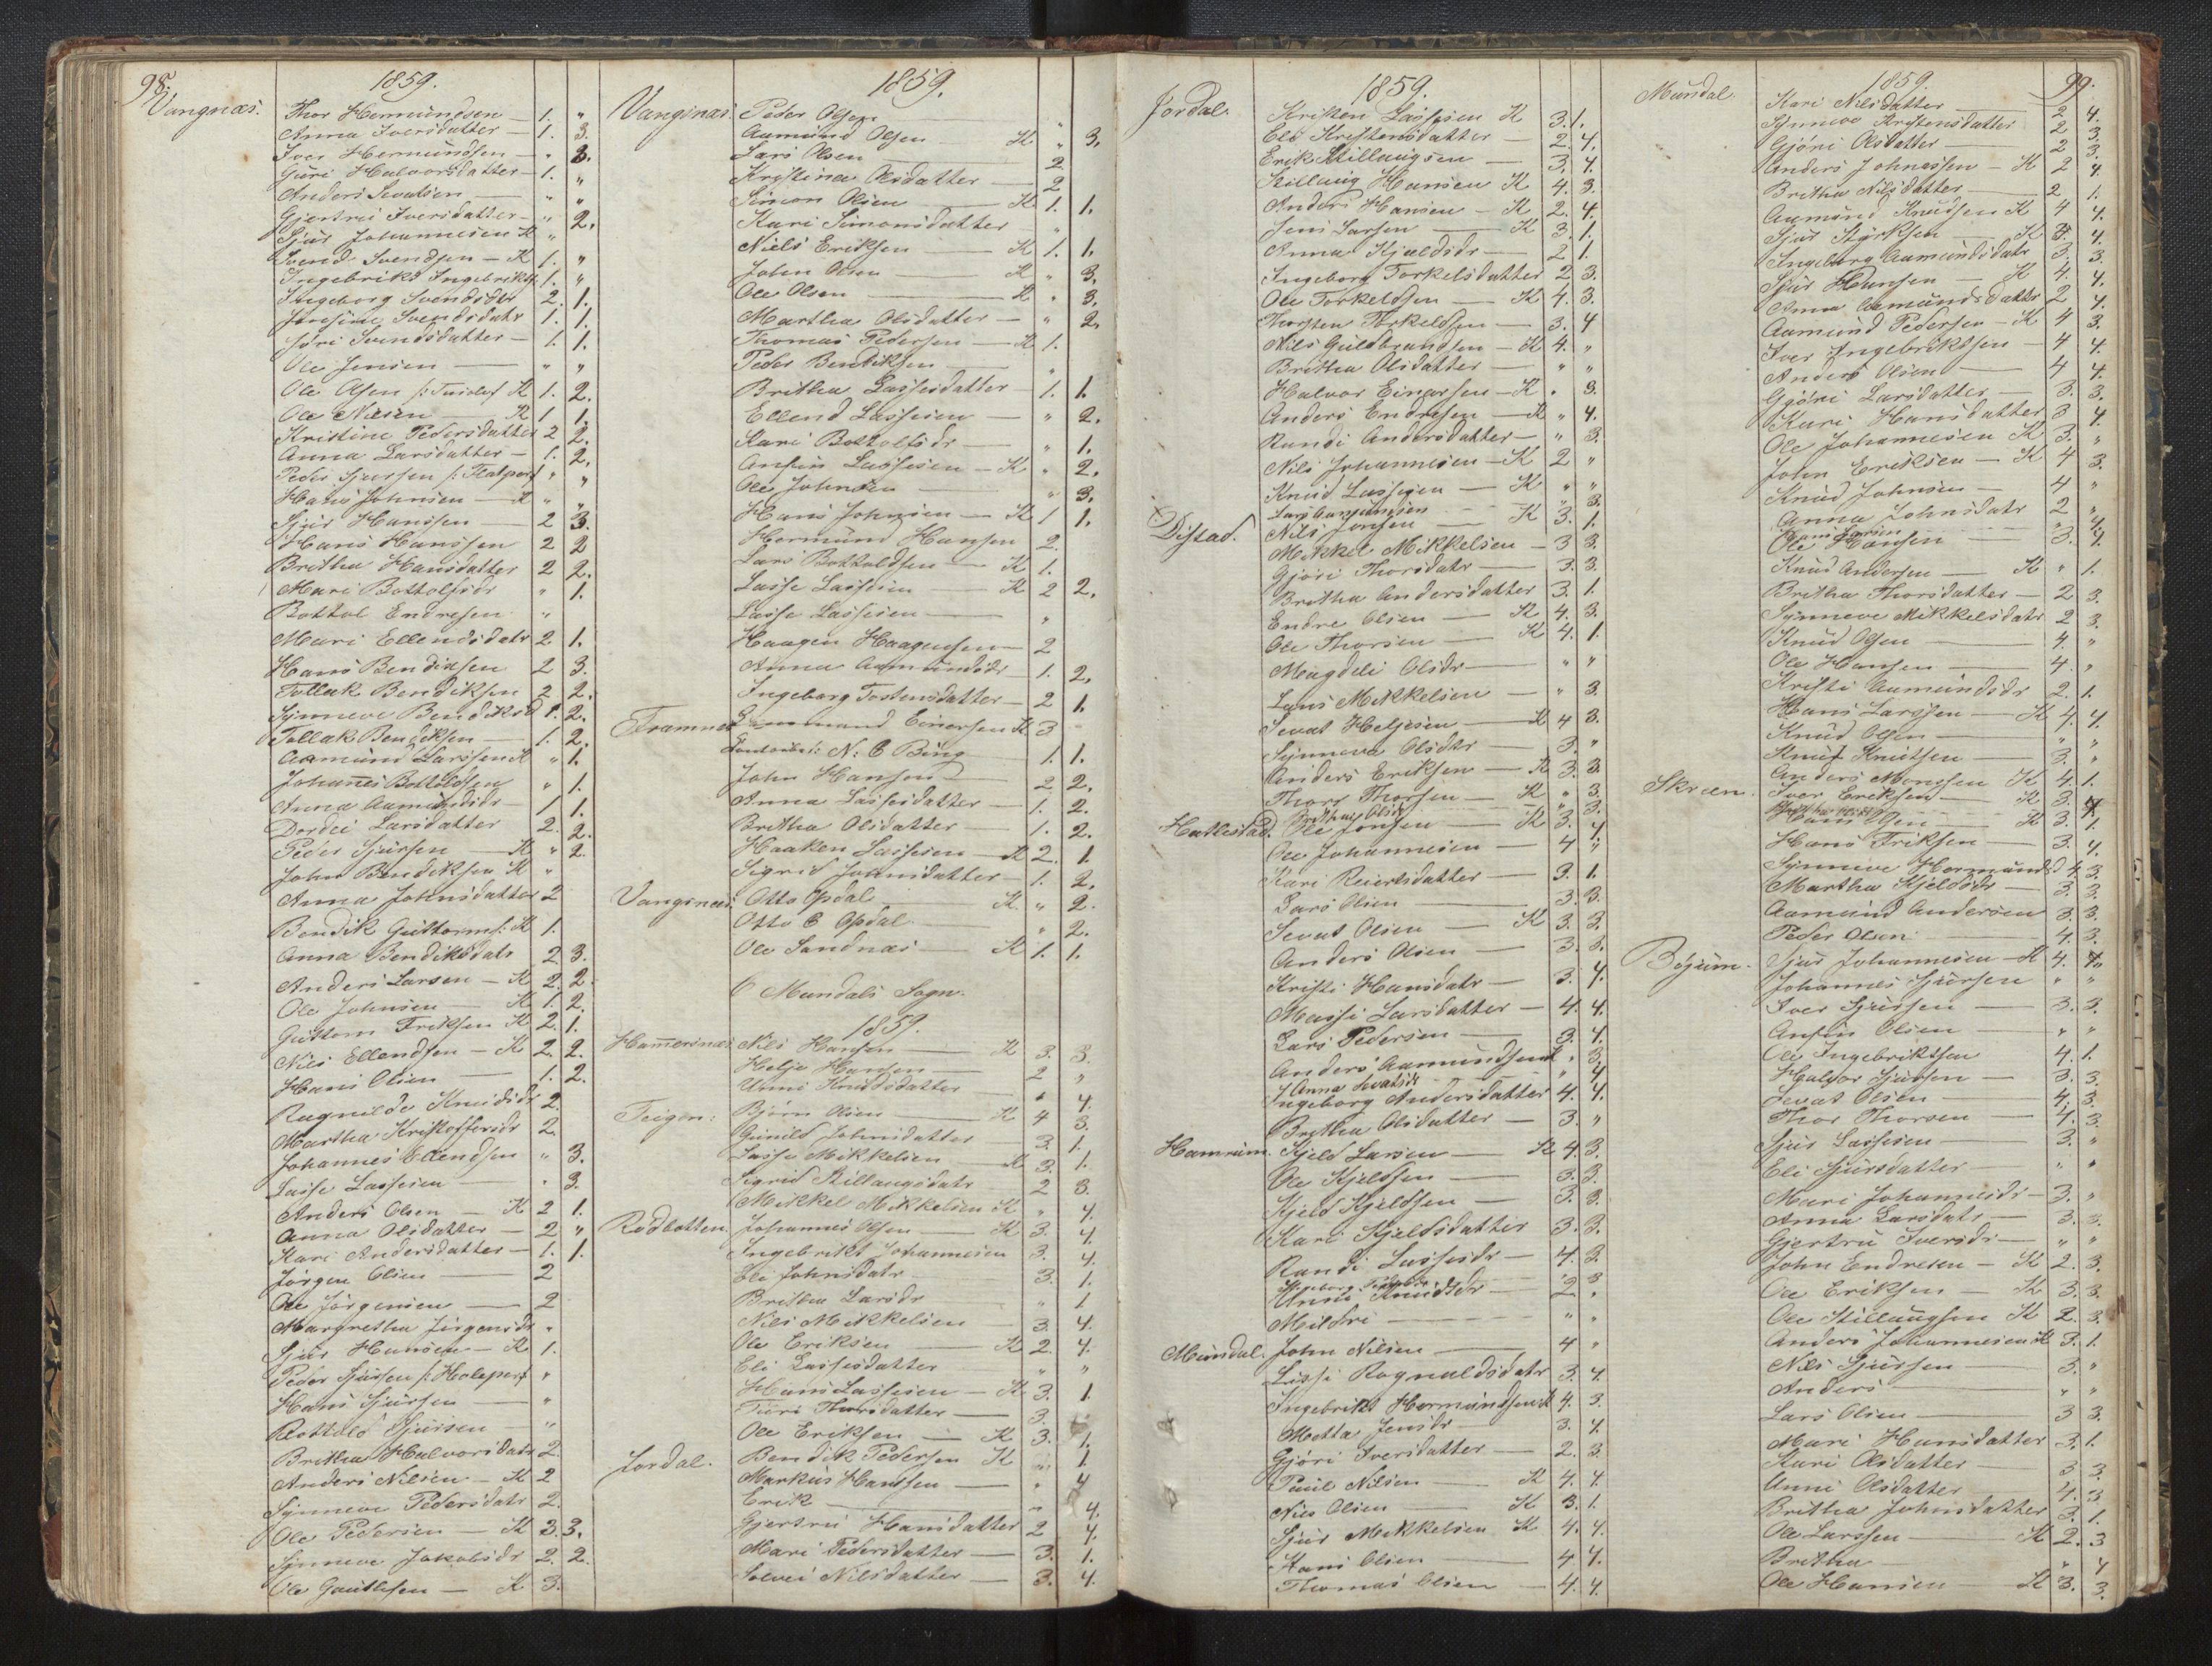 98.
1859.
Vangnæs. Thor Hermundsen — 1. "
Anna Iversdatter — 1. 3.
Iver Hermundsen — " 3.
Guri Halvorsdatter — 1. "
Anders Sevatsen — " "
Gjertrud Iversdatter — " 2.
Sjur Johannesen K "
Svend Svendsen — K 1. "
Ingebrikt Ingebriks. 1. "
Ingeborg Svendsdtr 2. 1.
Svendsdatr 1. 1.
Jori Svendsdatter — 1. 1.
Ole Jensen — " "
Ole Olsen K 1. 2.
Ole Nilsen — K 1 1.
Kristine Pedersdatter 2 2.
Anna Larsdatter — 1. 2.
Peder Sjursen " "
Hans Johnsen — K " "
Sjur Hanssen — 2 3.
Hans Hanssen 2 2
Britha Hansdatter 2 2.
Mari Bottolfsdr " 1.
Bottol Endresen "
Mari Ellendsdatr 2 1.
Hans Bendiksen 2 3.
Tollak Bendiksen 2 2.
Synneve Bendiksd 1. 2.
Tollak Bendiksen — 1. 2.
Aamund Larssen K " 1.
Johannes Bottolfsen " 1.
Anna Aamundsdr — 1 1.
Dordei Larsdatter 2. 2.
Peder Sjursen — K " 2.
John Bendiksen K "
Anna Johnsdatter 2
Bendik Guttorms. K 1.
Anna Bendiksdatr 2 3.
Anders Larsen — K 2. 2.
Ole Johnsen — K 1. 2.
Guttorm Eriksen K 2. 1.
Nils Ellendsen — K 2. 2.
Hans Olsen — 1. 2.
Ragnilde Knudsdr 2.
Martha Kristoffersdr 2.
Johannes Ellendsen " 3.
Lasse Lassesen — " 3.
Anders Olsen — K 2 1.
Anna Olsdatter — 2 "
Kari Andersdatter — 1. 1.
Jørgen Olsen — 2
Ole Jørgensen — 2
Margretha Jørgensdr "
Sjur Hansen — K 1.
Peder Sjursen "
Hans Sjursen — "
Bottold Sjursen "
Britha Halvorsdatr 2.
Anders Nilsen — K 2
Synneve Pedersdatr 2.
Ole Pedersen — K 3. 3.
Synneve Jakobsdr 2. 2.
Ole Gautesen — K 3.
1859.
Vangnæs. Peder Olsen "
Aamund Olsen K " 3.
Lars Olsen — 2
Kristina Olsdatter — 2
Simon Olsen K 1. 1.
Kari Simonsdatter "
Niels Eriksen — K 1. 1.
John Olsen — K " 3.
Ole Olsen — K " 3.
Martha Olsdatter — " 2.
Thomas Pedersen — K 1.
Peder Bendiksen — "
Britha Lassesdatter — 1. 1.
Ellend Lassesen — " 2.
Kari Bottolfsdr — " 1.
Anfin Lassesen — K " 2.
Ole Johnsen — " 3.
Hans Johnsen — K 1 1.
Hermund Hansen 2.
Lars Bottoldsen — K 1.
Lasse Lassesen — K 2 2.
Lasse Lassesen — "
Haagen Haagensen — 2
Anna Aamundsdr — 1. 2.
Ingeborg Tostensdatter — 2 1.
Framnes Einersen K 3 -
N: C Bing — 1. 1.
John Hansen — 2 2.
Anna Lassesdatter — 1. 2.
Britha Olsdatter — 1. 2.
Haaken Lassesen — K 2. 1.
Sigrid Johnsdatter — 1. 2.
Vangnæs. Otto Opdal K " 2.
Otto C Opdal — " 2.
Ole Sandnæs — K 1. 1.
Mundals Sogn.
1859.
Hamersnæs Nils Hansen — K 3. 3.
Helje Hansen — 2 "
Unni Knudsdatter " 4.
Teigen: Bjørn Olsen K 4 3.
Gunild Johnsdatter — 3. 1.
Lasse Mikkelsen K 3. 1.
Sigrid Stillaugsdatr 2 3.
Mikkel Mikkelsen K " 4.
Rødbotten. Johannes Olsen — K 3. 4.
Ingebrikt Johannesen 3. 4.
Eli Johnsdatr 3. 1.
Britha Larsdr " 1
Nils Mikkelsen — 3. 4.
Ole Eriksen K 2. 4.
Eli Lassesdatter " "
Hans Lassesen — K 3. 1
Thorsdatter — 3.
Ole Eriksen — K 3. 1.
Jordal. Bendik Pedersen K " 1.
Markus Hanssen — " 4
Erik — " 4.
Gjertru Hansdatter 2 4.
Mari Pedersdatter — 3. 1.
Solvei Nilsdatter — 3. 4.
1859.
Jordal. Kristen Lassesen K 3. 1.
Eli Kristensdatter — 2. 4.
Erik Stillaugsen — 3. 4.
Stillaug Hansen K 4. 3.
Anders Hansen — K 2. 4.
Jens Larsen — K 3. 1.
Anna Kjeldsdr — 2 1.
Ingeborg Torkelsdatter 2 3.
Ole Torkeldsen — K 4. 3.
Thorsten Torkeldsen — 3. 4
Nils Guldbrandsen — K 4. "
Britha Olsdatter — " "
Halvor Einarsen — K " 3.
Anders Endresen — K " 4.
Randi Andersdatter — " 3.
Nils Johannesen — K 2 "
Knud Lassesen — K " "
" 3.
Distad. Nils Jonsen — K 3. 1.
Mikkel Mikkelsen — 3 3.
Gjøri Thorsdatr — 3. 3.
Britha Andersdatter 3. 1.
Endre Olsen — K 4. 3.
Ole Thorsen — K 4. 1.
Magdeli Olsdr — " "
Lars Mikkelsen — " 3
Sevat Heljesen — K 4 3.
Synneva Olsdtr — 3. "
Anders Eriksen — K 3. 3
Thor Thorsen — K " 3.
Britha Olsdr " 3.
Hatlestad. Ole Jonsen — K 3. 4.
Ole Johannesen — 4 "
Kari Reiersdatter — 3. 1.
Lars Olsen — 3. 3.
Sevat Olsen — K 3. 3.
Anders Olsen — 3. 3.
Kristi Hansdatr — 3. 4.
Massi Larsdatter — 4. 4.
Lars Pedersen — 3. 4.
Anders Aamundsen K " 3.
Anna Sevatsdr " 4
Ingeborg Andersdatter 4. 4.
Britha Olsdatter — 3. "
Hamrum. Kjeld Larsen — K 4. 3.
Ole Kjeldsen — 3. 3.
Kjeld Kjeldsen — 3. 3
Kari Kjeldsdatter 3. 3.
Randi Lassesdr — 4. 3.
Ingeborg " 3
Unni Knudsdr — 2 "
Mildri — " "
Mundal. John Nilsen — 4 "
Lissi Ragnaldsdatr 3. 4.
Ingebrikt Hermundsen K 4. 3.
Metta Jensdr — 3. 4.
Gjøri Iversdatter — 2. 3.
Poul Nilsen — K 4. 4.
Nils Olsen — K 3. 1.
Sjur Mikkelsen K 4. 4.
Hans Olsen — 4 4.
Thomas Olsen — 4. 4.
1859.
99.
Mundal. Kari Nilsdatter — 2 4.
Synneve Kristensdatter 2 3.
Gjøri Olsdatter — 2 3.
Anders Johnassen — K 2 4
Britha Nilsdatter — 2 1.
Aamund Knudsen K 4 4.
Sjur Styrksen — K 3. 4.
Ingeborg Aamundsdatr 3. 3.
Sjur Hansen — K 4. 4.
Anna Aamundsdatter 2 4.
Aamund Pedersen — K 4 3.
Iver Ingebriktsen — 4 4.
Anders Olsen — 4 4.
Gjøri Larsdatter — 3. 3.
Kari Hansdatter 3 4.
Ole Johannesen K 3. "
John Eriksen — K 4 3.
Knud Johnsen — 4 "
Anna Johnsdatr 2 "
" 4.
Ole Hansen — 3. 4.
Knud Andersen — K " 1.
Britha Thorsdatter — 2 3.
Synneve Mikkelsdatr 2 3.
Knud Olsen — 4. "
Ole Hansen — 4. "
Kristi Aamundsdr 2. 1.
Hans Larssen — K 4. 4.
Knud Olsen — " "
Knut Knutsen — 3. "
Anders Monssen K 4. 1.
Skræn. Iver Eriksen — K 3. 4
Olsen — K 3. 1.
Hans Eriksen — 3. 4.
Synneve Hermundsd 4. 3.
Martha Kjeldsdr — 3. 3.
Aamund Andersen 3. 3.
Peder Olsen — 4. 3.
Bøyum. Sjur Johannesen — K 4. 4.
Johannes Sjursen " "
Iver Sjursen — 3. 3.
Anfin Olsen — " "
Ole Ingebriktsen 4. 1.
Halvor Sjursen — 3. 3.
Sevat Olsen — 4. 3.
Thor Thorsen — 4. 3.
Sjur Lassesen — 3. "
Eli Sjursdatter — " "
Mari Johannesdr — 3. "
Anna Larsdatr — 3. 3.
Gjertru Iversdr — " "
John Endresen — K 2. 3.
Ole Eriksen — K 3. 3.
Ole Stillaugsen K 2. 3.
Anders Johannesen K 3. 1.
Nils Sjursen — 3. "
Anders — " "
Lars Olsen — 3 3.
Mari Hansdatter 3. 1.
Kari Olsdatter — 3 3.
Unni Olsdatter — 4. 3
Britha Johnsdatter 3. 1.
Ole Larssen — K 2. 3
Britha — " 4
Ole Hansen — K 3. 3.